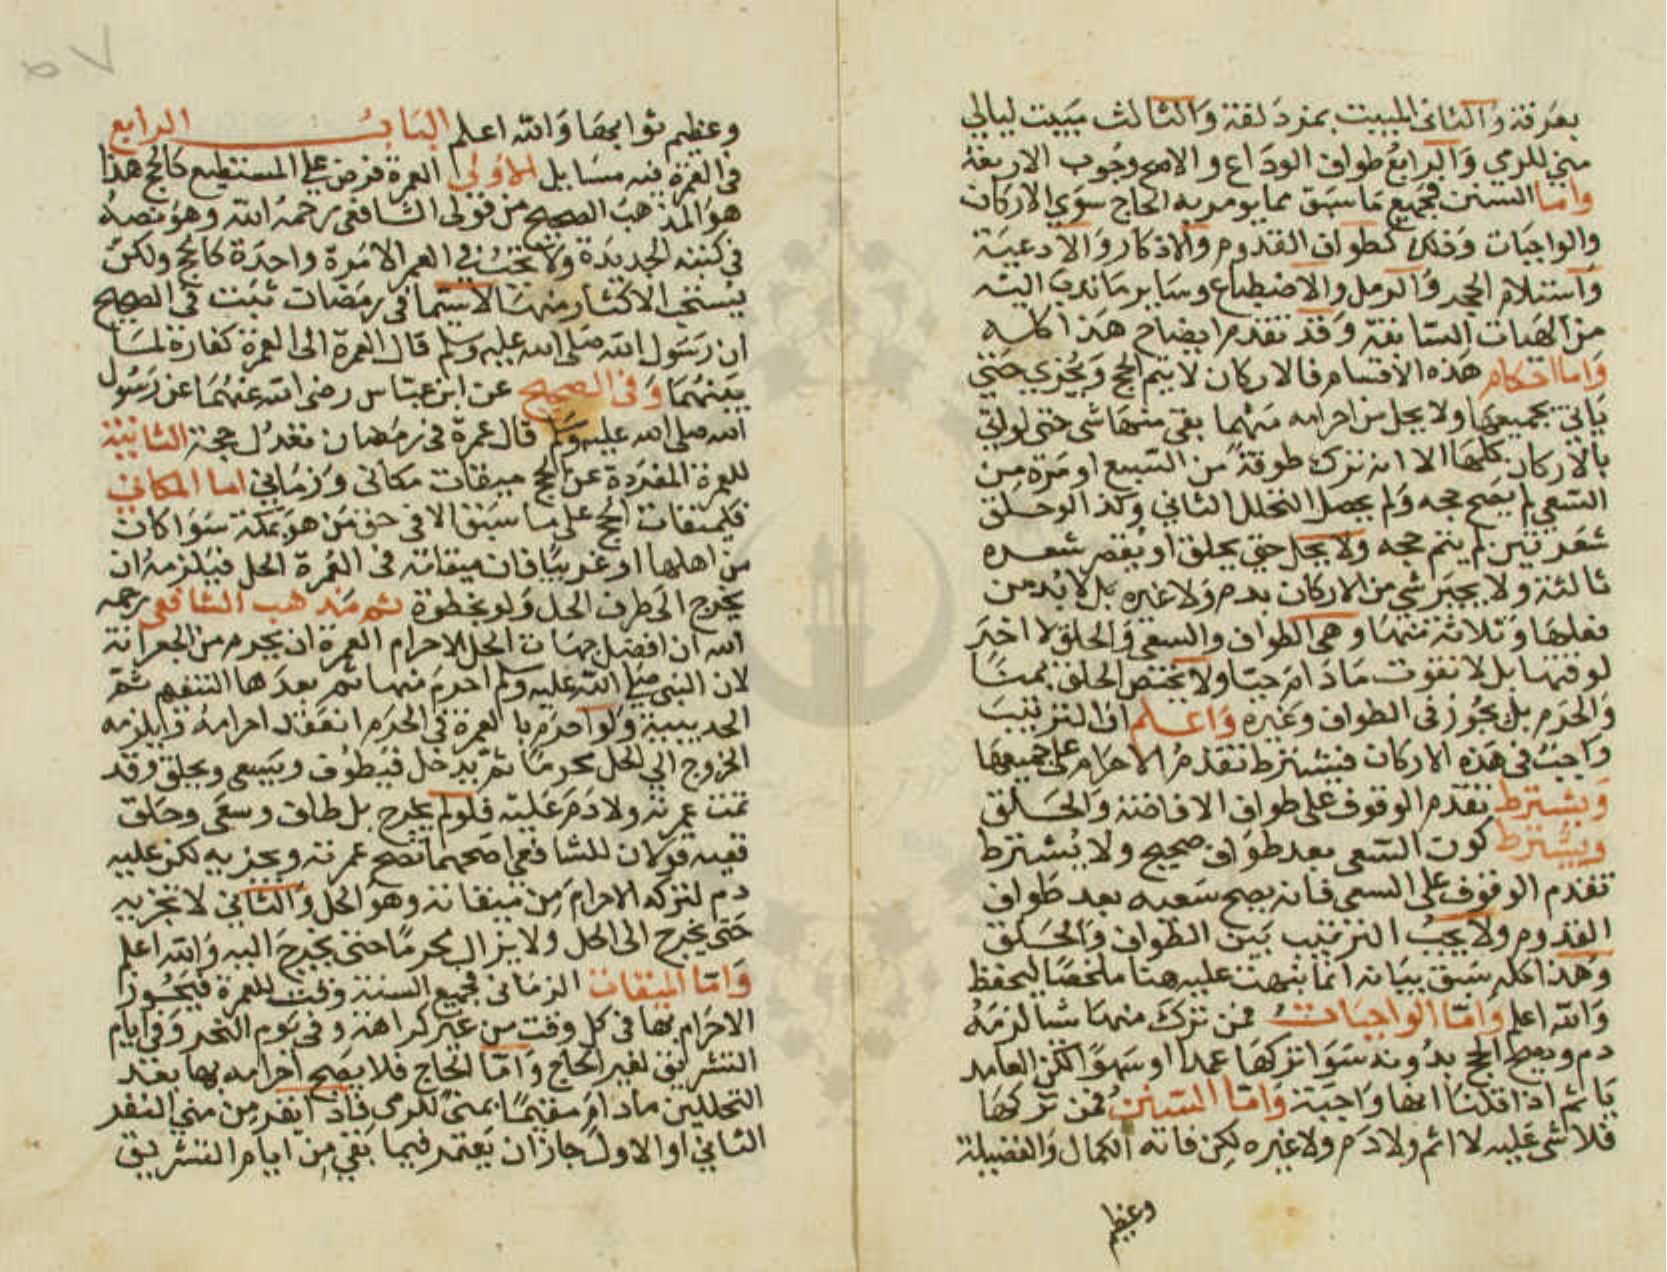 بعرفة والثاني المبيت بمزدلفة والثالث مبيت ليالي
مني للرمي والرابع طواف الوداع والاصح وجوب الاربعة
واما السنن فجميع ما سبق مما يومر به الحاج سوي الاركان
والواجبات وذلك كطواف القدوم والاذكار والادعية
واستلام الحجر والرمل والاضطباع وساير ما ندب اليه
من الهيات السابقة وقد تقدم ايضاح هذا كله
واما احكام هذه الاقسام فالاركان لا يتم الحج ويجزي حتي
ياتي بجميعها ولا يحل من احرامه مهما بقي منها شي حتي لو اتي
بالاركان كلها الا انه ترك طوفة من السبع او مرة من
السعي لم يصح حجه ولم يحصل التحلل الثاني وكذا لو حلق
شعرتين لم يتم حجه ولا يحل حتي يحلق او يقصر شعره
ثالثة ولا يجبر شي من الاركان بدم ولا غيره بل لا بد من
فعلها وثلاثة منها وهي الطواف والسعي والحلق لا اخر
لوقتها بل لا تفوت ما دام حيا ولا يختص الحلق بمني
والحرم بل يجوز في الطواف وغيره واعلم ان الترتيب
واجب في هذه الاركان فيشترط تقدم الاحرام علي جميعها
ويشترط تقدم الوقوف علي طواف الافاضة والحلق
ويشترط كون السعي بعد طواف صحيح ولا يشترط
تقدم الوقوف علي السعي فانه يصح سعيه بعد طواف
القدوم ولا يجب الترتيب بين الطواف والحلق
وهذا كله سبق بيانه انما نبهت عليه هنا ملخصا ليحفظ
والله اعلم واما الواجبات فمن ترك منها شيا لزمه
دم ويصح الحج بدونه سوا تركها عمدا او سهوا لكن العامد
ياثم اذا قلنا انها واجبة واما السنن فمن تركها
فلا شي عليه لا اثم ولا دم ولا غيره لكن فاته الكمال والفضيلة
وعظيم
وعظيم ثوابها والله اعلم الباب الرابع
في العمرة فيه مسايل الاولي العمرة فرض علي المستطيع كالحج هذا
هو المذهب الصحيح من قولي الشافعي رحمه الله وهو نصه
في كتبه الجديدة ولا تجب في العمر الا مرة واحدة كالحج ولكن
يستحب الاكثار منها لا سيما في رمضان ثبت في الصحيح
ان رسول الله صلى الله عليه وسلم قال العمرة الى العمرة كفارة لما
بينهما وفي الصحيح عن ابن عباس رضي الله عنهما عن رسول
الله صلى الله عليه وسلم قال عمرة في رمضان تعدل حجة الثانية
للعمرة المفردة عن الحج ميقات مكاني وزماني اما المكاني
فكميقات الحج علي ما سبق الا في حق من هو بمكة سوا كان
من اهلها او غريبا فان ميقاته في العمرة الحل فيلزمه ان
يخرج الى طرف الحل ولو بخطوة ثم مذهب الشافعي رحمه
الله ان افضل جهات الحل لاحرام العمرة ان يحرم من الجعرانة
لان النبي صلى الله عليه وسلم احرم منها ثم بعدها التنعيم ثم
الحديبية ولو احرم بالعمرة في الحرم انعقد احرامه ويلزمه
الخروج الي الحل محرما ثم يدخل فيطوف ويسعي ويحلق وقد
تمت عمرته ولا دم عليه فلو لم يخرج بل طاف وسعي وحلق
ففيه قولان للشافعي اصحهما تصح عمرته ويجزيه لكن عليه
دم لتركه الاحرام من ميقاته وهو الحل والثاني لا تجزيه
حتي يخرج الى الحل ولا يزال محرما حتي يخرج اليه والله اعلم
واما الميقات الزماني فجميع السنة وقت للعمرة فيجوز
الاحرام بها في كل وقت من غير كراهة وفي يوم النحر وفي ايام
التشريق لغير الحاج واما الحاج فلا يصح احرامه بها بعد
التحللين ما دام مقيما بمني للرمي فاذا نفر من مني النفر
الثاني او الاول جاز ان يعتمر فيما بقي من ايام التشريق